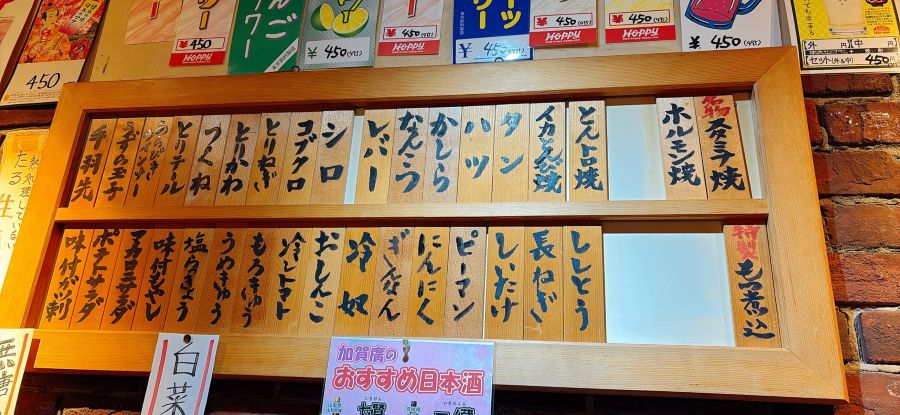 名物 スタミナ焼
ホルモン焼
とんトロ焼
イカとんび焼
タン
ハツ
かしら
なんこつ
レバー
シロ
コブクロ
とりねぎ
とりかわ
つくね
とりテール
あらびきウインナー
うずら玉子
手羽先
特製 もつ煮込
ししとう
長ねぎ
しいたけ
ピーマン
にんにく
ぎんなん
冷奴
おしんこ
冷しトマト
もろきゅう
うめきゅう
塩らっきょう
味付もやし
マカロニサラダ
ポテトサラダ
味付ガツ刺
450
¥450
HOPPY
¥450
¥450(外1)
HOPPY
¥450
¥450
HOPPY
¥450
HOPPY
¥450
外 中
セット(外&中) 450
白菜
加賀廣の
おすすめ日本酒